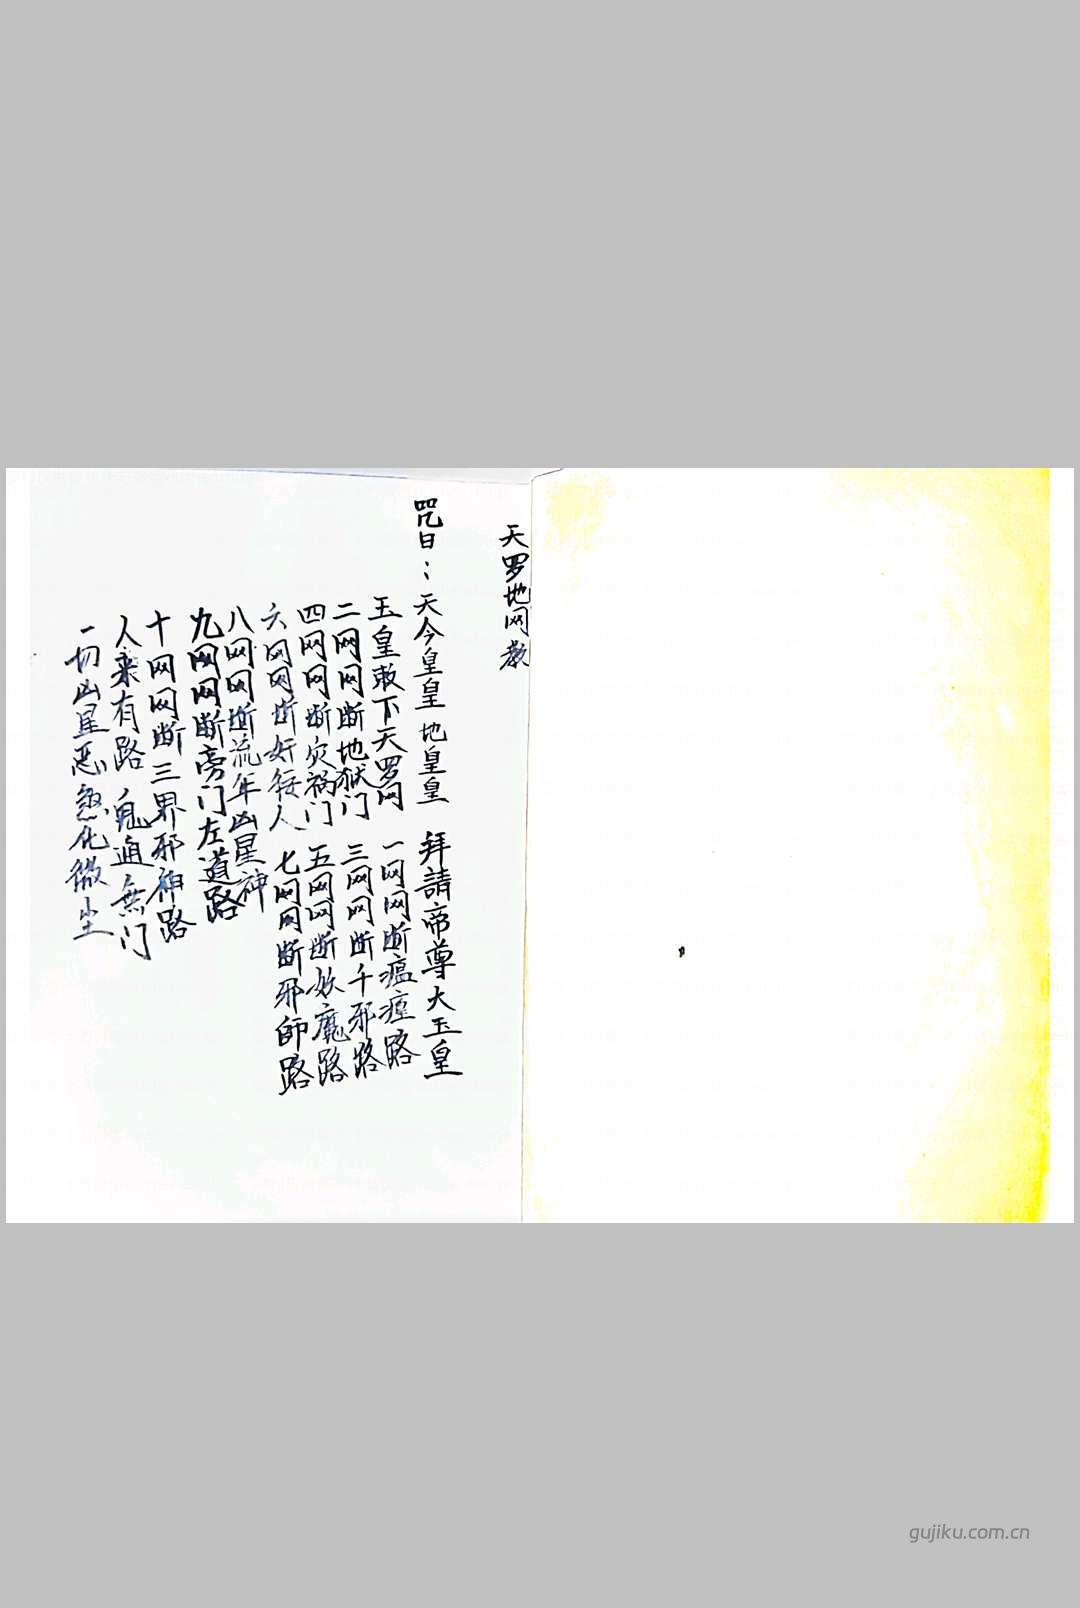 天罗地网教
咒曰：天今皇皇 地皇皇 拜請帝尊大玉皇
玉皇敕下天罗网 一网网断瘟瘴路
二网网断地狱门 三网网断千邪路
四网网断灾祸门 五网网断妖魔路
六网网断奸狡人 七网网断邪師路
八网网断流年凶星神
九网网断旁门左道路
十网网断三界邪神路
人来有路 鬼通無门
一切凶星恶煞化微尘
gujiku.com.cn